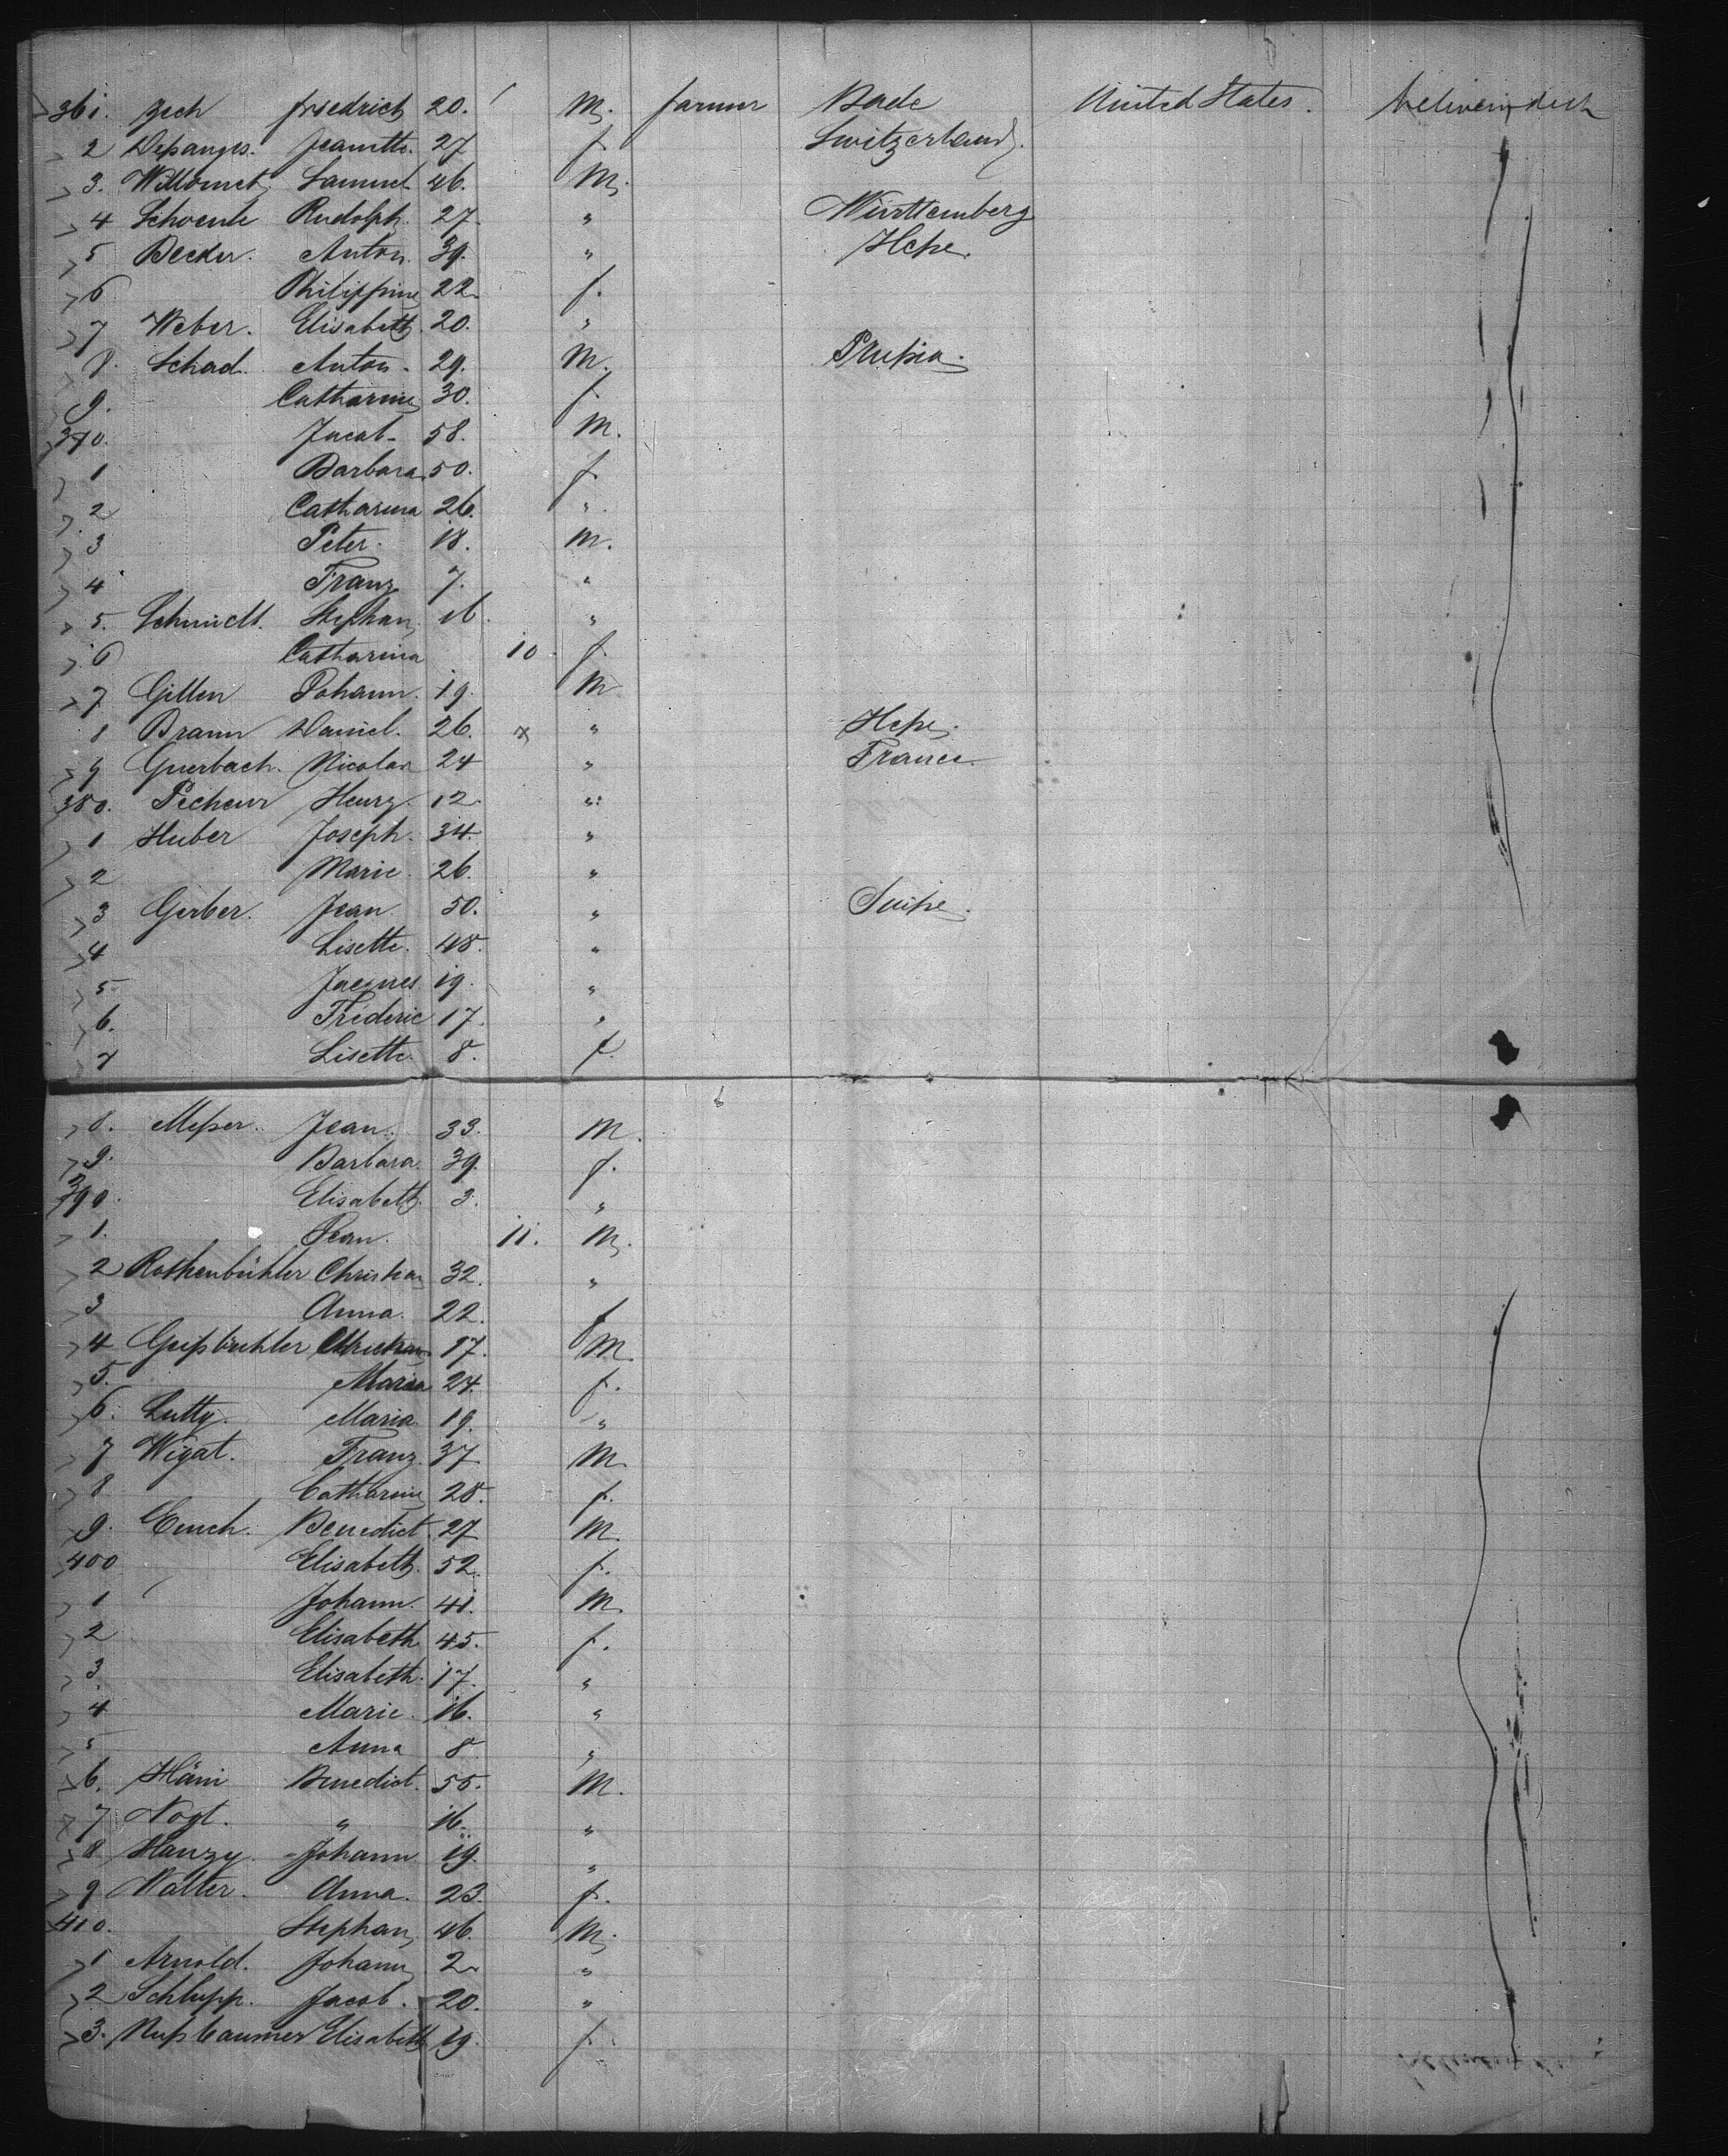 361. Zech Friedrich 20. M. farmer Bade United States. between deck
2 Depanges. Jeanette. 27 f. Switzerland.
3. Willomet Samuel 46. M.
4 Schoenle Rudolph 27. " Württemberg
5 Becker. Anton. 39. " Heße.
6 Philippine 22. f.
7 Weber. Elisabeth. 20. "
8. Schad. Anton. 29. M. Prußia.
9. Catharine 30. f.
370. Jacob. 58. M.
1 Barbara 50. f.
2 Catharina 26. "
3 Peter. 18. M.
4 Franz 7. "
5. Schmidt. Stephan 16. "
6 Catharina 10. f.
7 Gillen Johann. 19. M
8 Braun Daniel. 26. x " Heße.
9 Guerbach. Nicolas 24 " France.
380. Pecheur Henry. 12. "
1 Huber Joseph. 34. "
2 Marie. 26. "
3 Gerber. Jean. 50. " Suiße.
4 Lisette. 48. "
5 Jacques 19. "
6. Fréderic 17. "
7 Lisette. 8. f.
8. Meßer. Jean. 33. M.
9. Barbara. 39. f.
390. Elisabeth. 3. "
1. Jean. 11. M.
2 Rothenbühler Christian 32. "
3 Anna. 22. f
4 Geißbühler Christian 17. M.
5. Maria 24. f.
6. Lutty. Maria. 19. "
7 Wigat. Franz. 37 M.
8 Catharine 28. f.
9. Emch. Benedict. 27 M.
400 Elisabeth. 52. f.
1 Johann. 41. M.
2 Elisabeth 45. f.
3. Elisabeth. 17. "
4 Marie. 16. "
5 Anna 8 "
6. Häni Benedict. 55. M.
7 Vogt. " 16. "
8 Hanzy. Johann 19. "
9 Walter. Anna. 23. f.
410. Stephan 46. M.
1 Arnold. Johann 2 "
2 Schlupp. Jacob. 20. "
3. Nußbaumer Elisabeth 19. f.